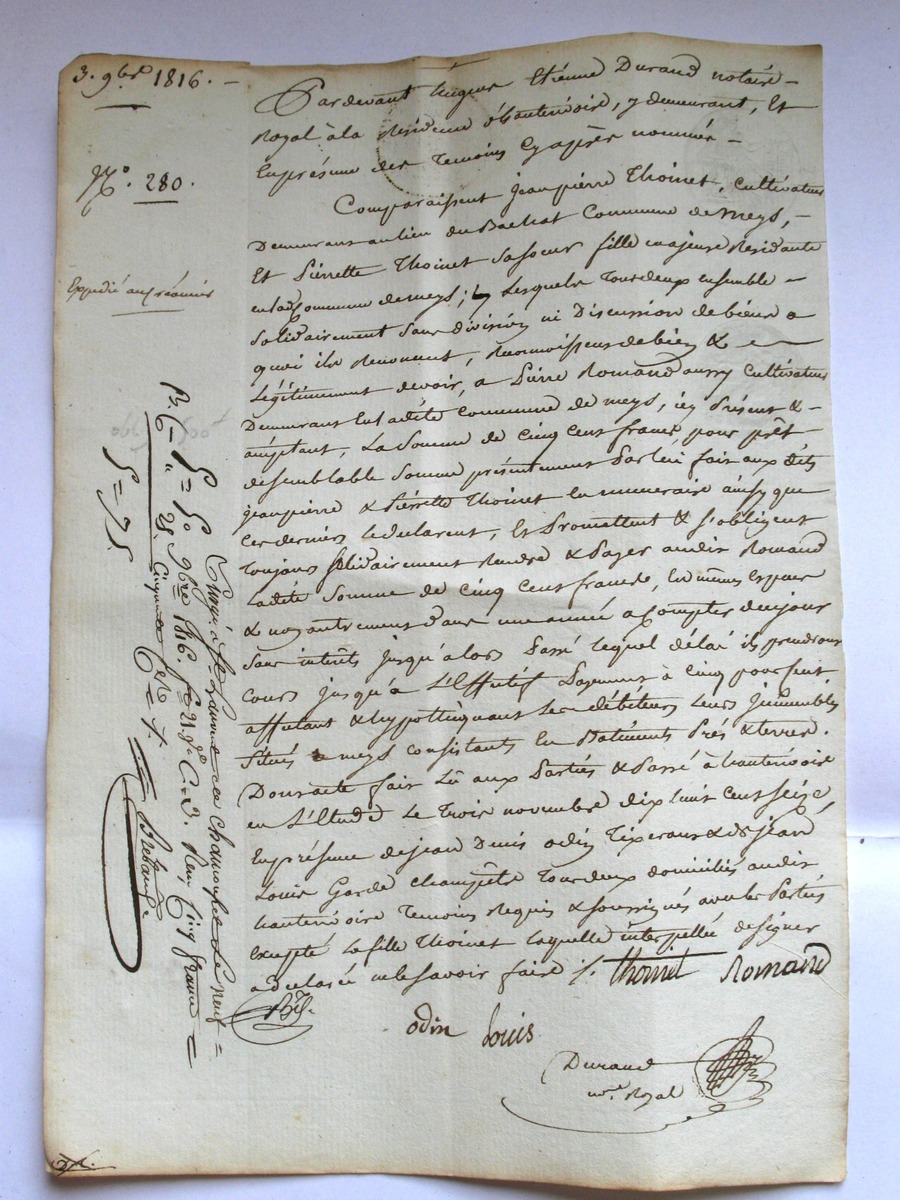 3. 9bre 1816. –
N.° 280.
Expédié au créancier
Pardevant Hugues Etienne Durand notaire –
Royal à la Résidence d'hauterivoire, y demeurant, Et
En présence des Temoins Cy après nommés –
Comparaissent Jeanpierre Thoinet, cultivateur
Demeurant au lieu du Bachat Commune de meys, –
Et Pierrette Thoinet sa soeur fille majeure Residante
en lad. Commune de meys; Lesquels Tousdeux ensemble –
Solidairement sans division ni Discussion de biens a
quoi ils Renoncent, Reconnoissent de bien & –
Légitimement devoir, a Pierre Romand aussy cultivateur
Demeurant En ladite commune de meys, icy Présent & –
acceptant, La Somme de cinq cent francs, pour prêt
de semblable Somme présentement Par lui fait aux dits
Jeanpierre & Pierrette Thoinet en numeraire ainsy que
Ces derniers le déclarent, Et Promettent & s'obligent
Toujours solidairement Rendre & Payer audit Romand
Ladite Somme de cinq cent francs, En mêmes Especes
& non autrement dans une année a Compter de ce jour
Sans intérêts jusqu'alors Passé lequel délai ils prendront
cours jusqu'a L'Effectif Payement à cinq pour cent
affectant & hypothéquant Les débiteurs Leurs Immeubles
Situés a meys consistants En Batiments Prés & terres.
Dont acte fait Lû aux Parties & Passé à hauterivoire
en L'Etude Le trois novembre dix huit cent seize,
En présence de jean Denis odin Tixerant & de jean
Louis Garde champêtre Tousdeux domiciliés audit
hauterivoire Temoins Requis & soussignés avec les Parties
Excepté La fille Thoinet laquelle interpellée de signer
a déclaré ne le savoir faire ./. Thoinet Romand
odin Louis
Durand
no.re Royal
5 = 5°
5 = 75
Enregé à St Laurent de chamousset Le neuf =
9bre 1816. f° 21 C. 3. Reçu Cinq francs =